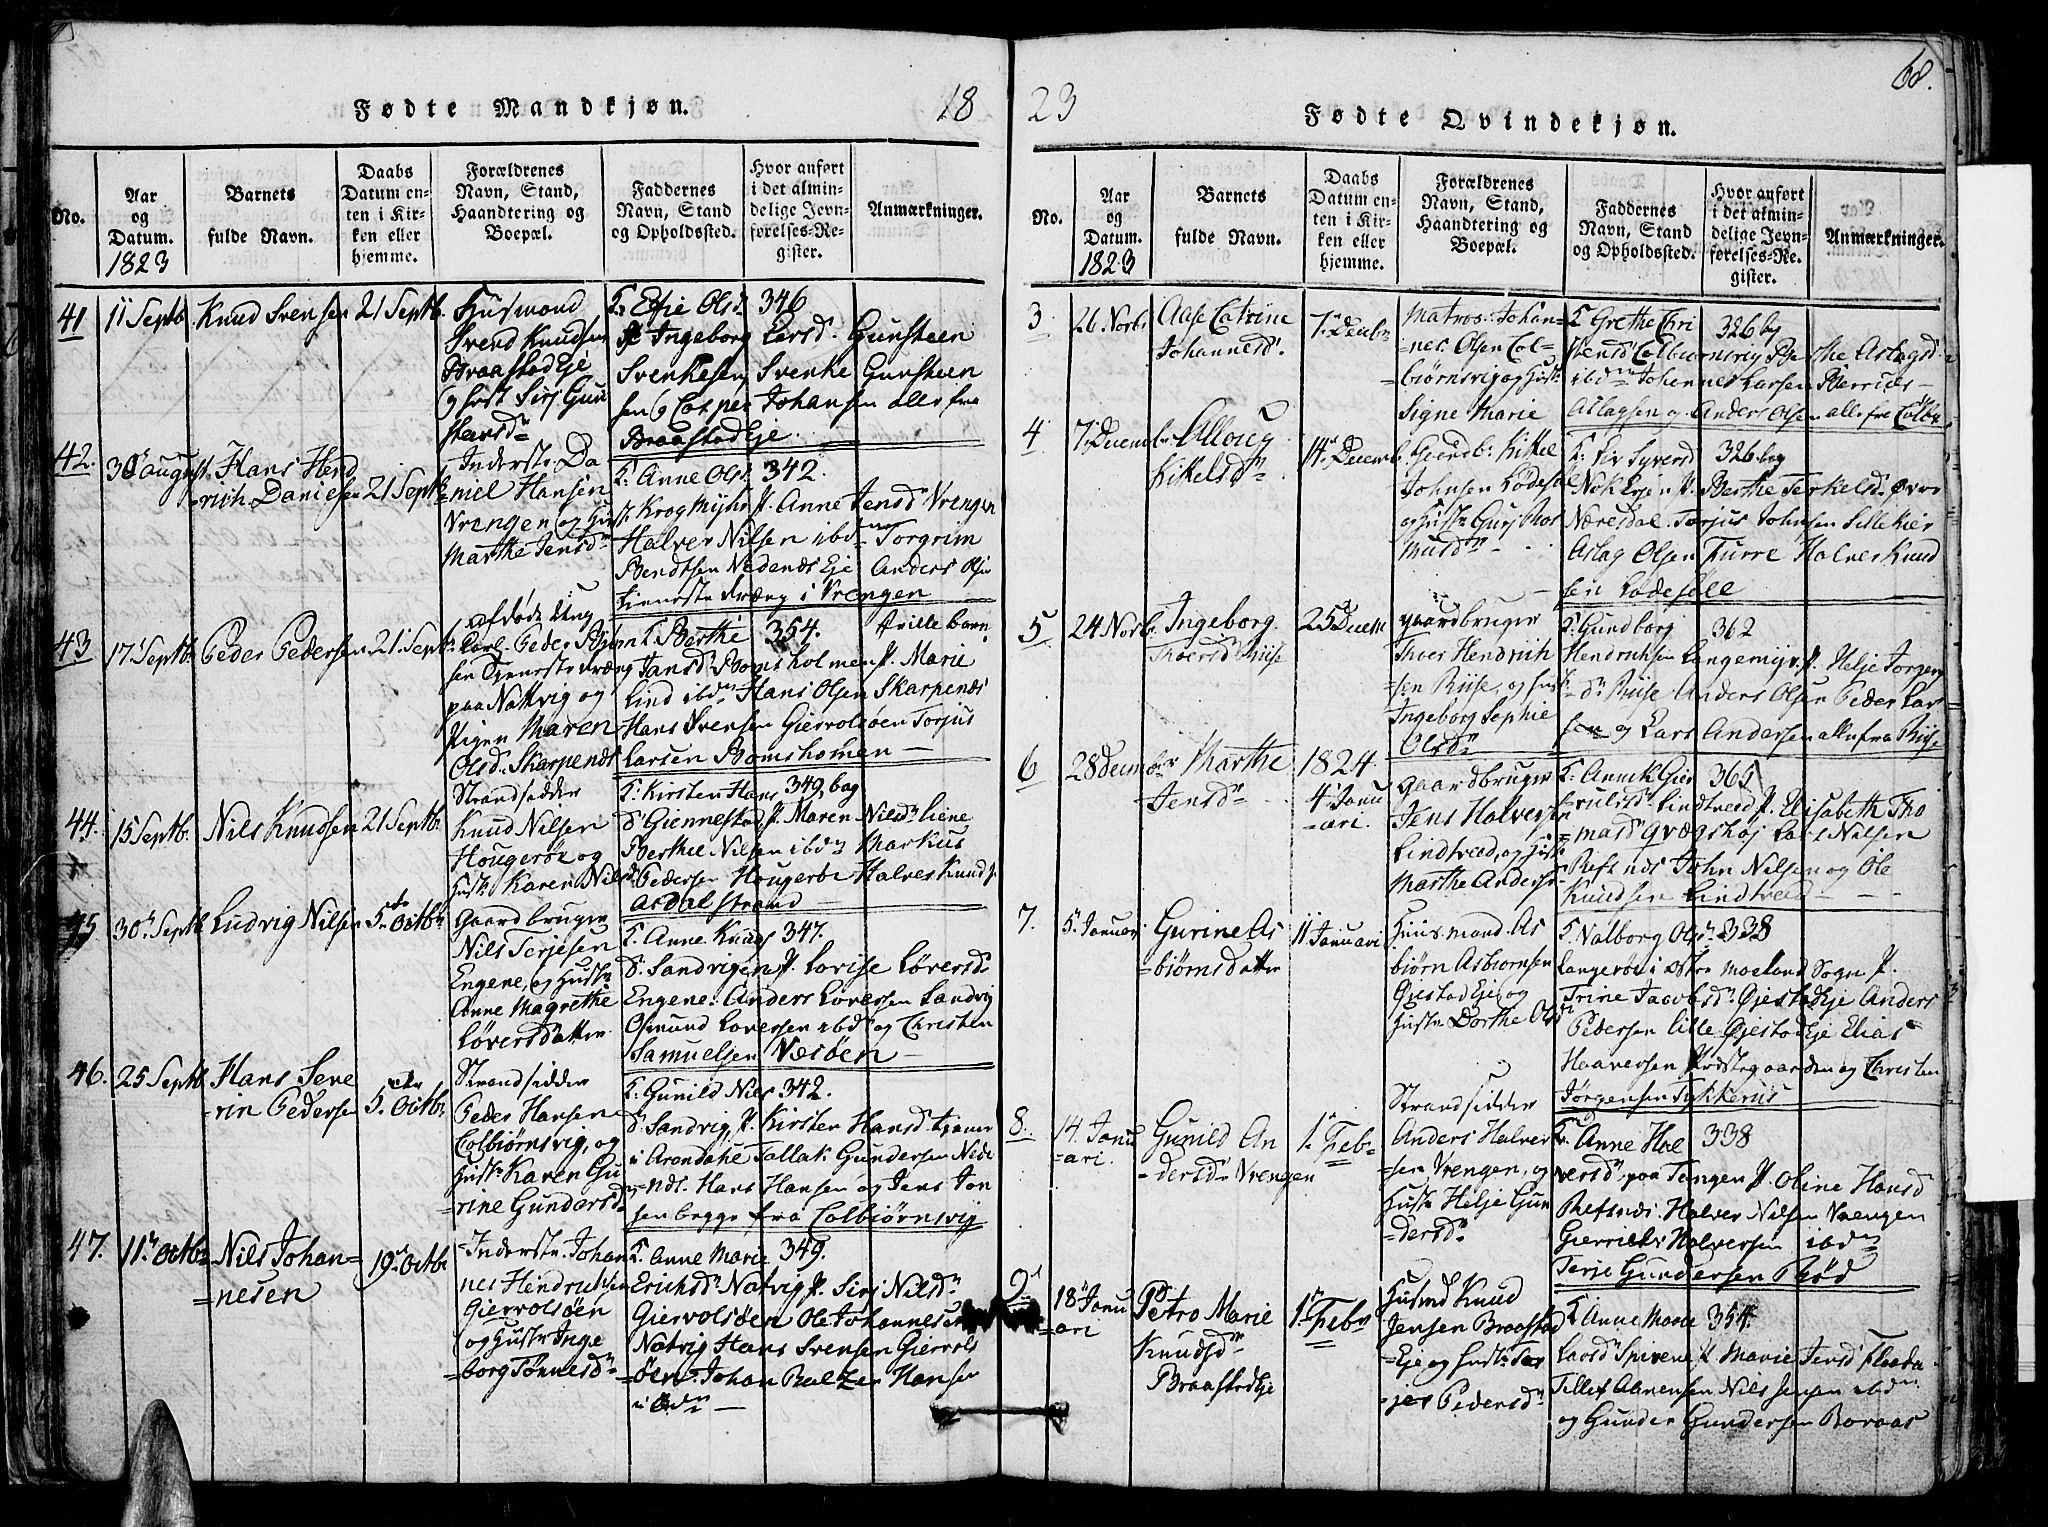 18
Fødte Mandkjøn.
No.
Aar og Datum.
1823
Barnets fulde Navn.
Daabs Datum enten i Kirken eller hjemme.
Forældrenes Navn, Stand, Haandtering og Boepæl.
Faddernes Navn, Stand og Opholdssted.
Hvor anført i det almindelige Jevnførelses-Register.
Anmærkninger.
41
11 Septb.
Knud Svensen
21 Septb.
Huusmand
Svend Knudsen
Braastad Eje
og Hust Siri Gun
stensd
K: Efie Olsd 346
P Ingeborg Larsd. Gunsteen
Svenkesen, Svenke Gunsteen
sen og Casper Johansen alle fra
Braastad Eje.
42.
30 august
Hans Hend
rich Danielsen
21 Septb
Inderste Da
niel Hansen
Vrengen og Hu
Marthe Jensd
K: Anne Olsd 342.
Krogmyhr P. Anne Jensd Vrengen
Halvor Nilsen ibd Torgrim
Bendtsen Nedenæs Eje Anders Olsen
tjeneste dræng i Vrengen
43
17 Septb.
Peder Pedersen
21 Septb.
afdøde Ung
karl Peder Bjørn
sen Tjeneste dræng
paa Natvig og
Pigen Maren
Olsd. Skarpenæs
K. Berthe 354.
Jansd. Bomsholmen P. Marie
Lind ibd Hans Olsen Skarpenæs
Hans Svensen Giervolsøen Torjus
Larsen Bomsholmen
tville barn
44.
15 Septb.
Nils Knudsen
21 Septb.
Strandsidder
Knud Nilsen
Hougerøe og
Hust. Karen Nilsd
K: Kirsten Hans 349, bag
d. Giennestad P. Maren Nilsd Liene
Berthe Nilsen ibd Markus
Pedersen Hougerøe Halvor Knuds.
Asdal strand
45
30 Septb
Ludvig Nilsen
5 Octbr
Gaardbruger
Nils Terjesen
Engene, og Hustr
Anne Magrethe
Løversdatter
K. Anne Knuds 347.
d. Sandvigen P. Lovise Løversd
Engene. Anders Løversen Sandvig
Osmund Loversen ibd og Christen
Samuelsen Næsøen
46.
25 Septb.
Hans Seve
rin Pedersen
5 Octbr
Strandsidder
Peder Hansen
Colbiørnsvig, og
Hust. Karen Gu
rine Gundersd
K. Gunild Nils 342.
d. Sandvig, P. Kirsten Hansd tjener
i Arendahl Tallak Gundersen Nede
næs. Hans Hansen og Jens Jon
sen begge fra Colbiørnsvig
47.
11 Octbr
Nils Johan-
=nesen
19 Octbr
Inderste Johan
nes Hendrichsen
Giervolsøen
og Hustr Inge
borg Tønnesd
K. Anne Marie 349.
Erichsd Natvig P. Siri Nilsd
Giervolsøen Ole Johannesen
Natvig Hans Svensen Giervols
øen. Johan Baltzer Hansen
ibd
23
68.
Fødte Qvindekjøn.
No.
Aar og Datum.
1823
Barnets fulde Navn.
Daabs Datum enten i Kirken eller hjemme.
Forældrenes Navn, Stand, Haandtering og Boepæl.
Faddernes Navn, Stand og Opholdssted.
Hvor anført i det almindelige Jevnførelses-Register.
Anmærkninger.
3
26 Novb.
Aase Catrine
Johannesd.
7 Decmbr
Matros: Johan-
=nes. Olsen Col-
=biørnsvig og Hust
Signe Marie
K Grethe Chri 326 bag
stensd Colbiørnsvig P. Aslagsd
ibd Johannes Larsen
Aslagsen og Anders Olsen alle fra Colbi
4
7 Decembr
Alloug
Kittelsd
14 Decemb.
Gaardb: Kittel
Johnsen Lødesøl
og Hustr Guri Ras
musd
K: Siv Syversd 326 bag
P. Berthe Terkelsd.
Næresdal. Torjus Johnsen Lillekier
Aslag Olsen Furre Halvor Knud
sen Lødesøll
5
24 Novb.
Ingeborg
Thoersd Riise
25 Decem
gaardbruger
Thoer Hendrich
sen Riise, og Hust
Ingeborg Sophie
Olsd
K. Gundborg 362
Hendrichsen Langemyr. P. Helje Jørgens
d Riise Anders Olsen Peder Lar
sen og Lars Andersen alle fra Riise
6
28 Decmbr
Marthe
Jensd
1824.
4 Janu
=ari.
Gaardbruger
Jens Halvorsen
Lindtvead, og Hust
Marthe Andersd
K. Annik Gier 365
rulsd Lindtvedd P. Elisabeth Tho
masd Lars Nilsen
Refsnæs John Nilsen og Ole
Knudsen Lindtvead
7.
5 Januari
Gurine As
biørnsdatter
11 Januari
Huusmand. As
biørn Asbiørnsen
Øiestad Eje, og
Hustr Dorthe Olsd
K. Valborg Olsd 338
Langerøe i østre Moeland Sogn P.
Trine Jacobsd Øjestad Eje Anders
Pedersen Lille Øjestad Eje Elias
Haaversen Præstegaarden og Christen
Jørgensen Tykkerus
8.
14. Janu
=ari.
Gunild An
dersd Vrengen
1 Febr
Strandsidder
Anders Halver
=sen Vrengen, og
Hustr Helje Gun
=dersd
K. Anne Hal 338
versd paa Tangen P. Oline Hansd
Refsnæs. Halver Nilsen Vrengen
Halversen ibd
Terje Gundersen Rød
9
18 Janu
=ari
Petro Marie
Knudsd
Braastad Eje
1 Febr
Husmd Knud
Jensen Braastad
=Eje og Hust
Pedersd
K Anne Marie 354
Larsd P. Marie Jensd
Nils Jensen ibd
og Gunder Gundersen Boraas